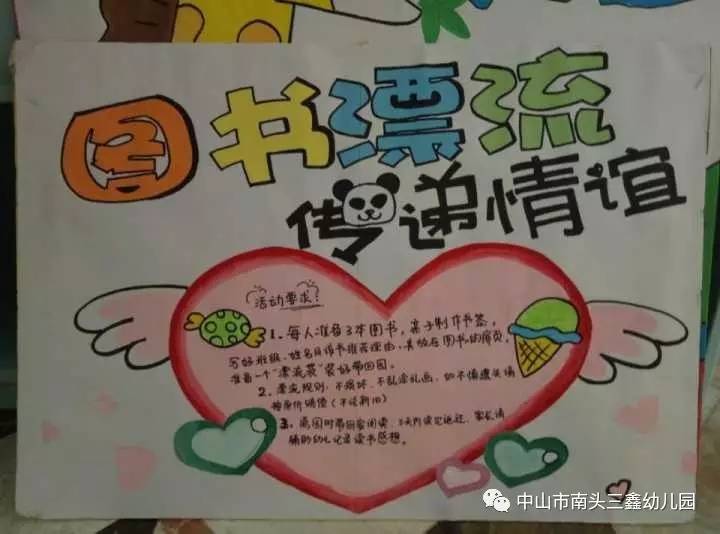 图书漂流
传递情谊
活动要求:
1、每人准备3本图书,亲子制作书签,
写好班级、姓名及该书推荐理由,夹放在图书的扉页,
准备一个"漂流袋"装好带回园。
2、漂流规则:不损坏、不乱涂乱画,如不慎遗失请
按原价赔偿(不论新旧)
3、离园时带回家阅读,3天内读完归还,家长请
辅助幼儿记录读书感想。
中山市南头三鑫幼儿园